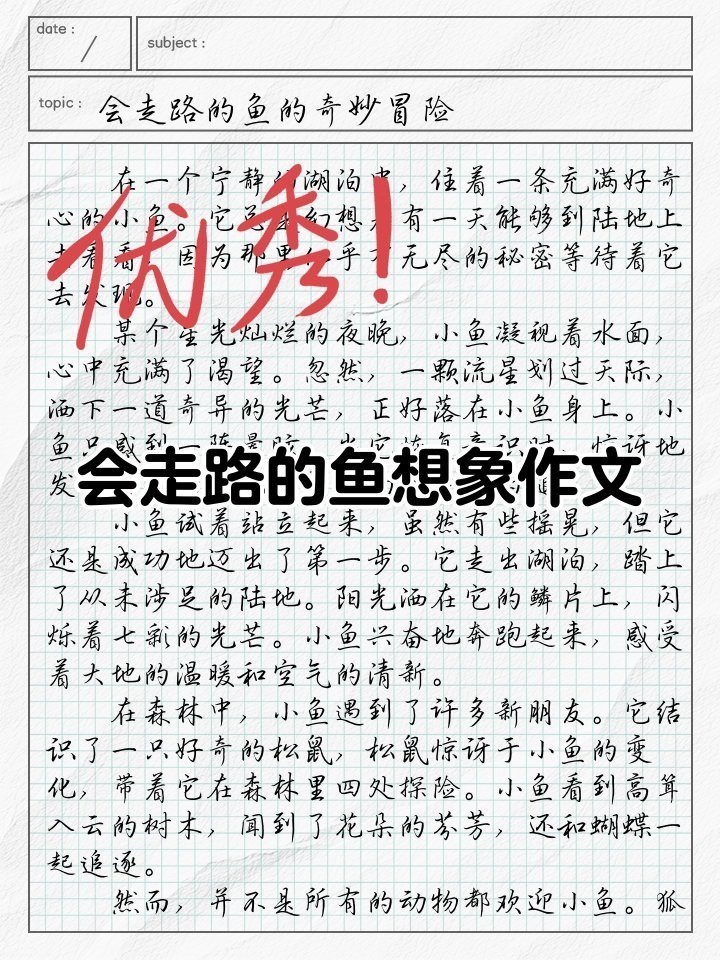 date :
/
subject :
topic : 会走路的鱼的奇妙冒险
在一个宁静湖泊中，住着一条充满好奇
心的小鱼。它总幻想有一天能够到陆地上
去看看，因为那里似乎无尽的秘密等待着它
去发现。
优秀！
某个星光灿烂的夜晚，小鱼凝视着水面，
心中充满了渴望。忽然，一颗流星划过天际，
洒下一道奇异的光芒，正好落在小鱼身上。小
鱼只感到一阵，惊讶地
发
会走路的鱼想象作文
小鱼试着站立起来，虽然有些摇晃，但它
还是成功地迈出了第一步。它走出湖泊，踏上
了从未涉足的陆地。阳光洒在它的鳞片上，闪
烁着七彩的光芒。小鱼兴奋地奔跑起来，感受
着大地的温暖和空气的清新。
在森林中，小鱼遇到了许多新朋友。它结
识了一只好奇的松鼠，松鼠惊讶于小鱼的变
化，带着它在森林里四处探险。小鱼看到高耸
入云的树木，闻到了花朵的芬芳，还和蝴蝶一
起追逐。
然而，并不是所有的动物都欢迎小鱼。狐